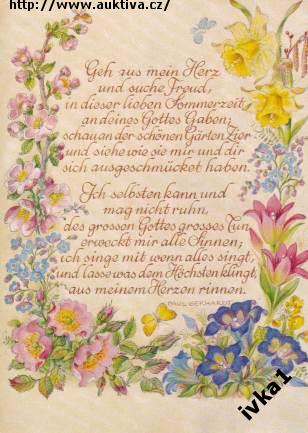 http://www.auktiva.cz/
Geh aus mein Herz
und suche Freud,
in dieser lieben Sommerzeit,
an deines Gottes Gaben;
schau an der schönen Gärten Zier
und siehe wie sie mir und dir
sich ausgeschmücket haben.
Ich selbsten kann und
mag nicht ruhn,
des grossen Gottes grosses Tun
erweckt mir alle Sinnen;
ich singe mit wenn alles singt,
und lasse was dem Höchsten klingt,
aus meinem Herzen rinnen.
PAUL GERHARDT
ivka1